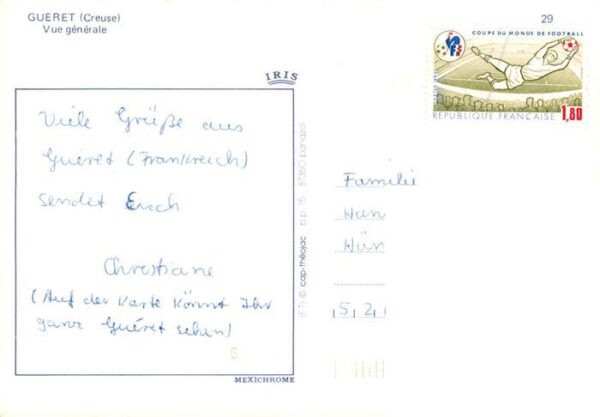 GUERET (Creuse)
Vue générale
29
COUPE DU MONDE DE FOOTBALL
REPUBLIQUE FRANÇAISE
1,80
IRIS
Viele Grüße aus
Guéret (Frankreich)
sendet Euch
Christiane
(Auf der Karte könnt Ihr
ganz Guéret sehen)
MEXICHROME
cap-théojac b.p. 15 87350 panazol
Familie
Han
Hün
5 2